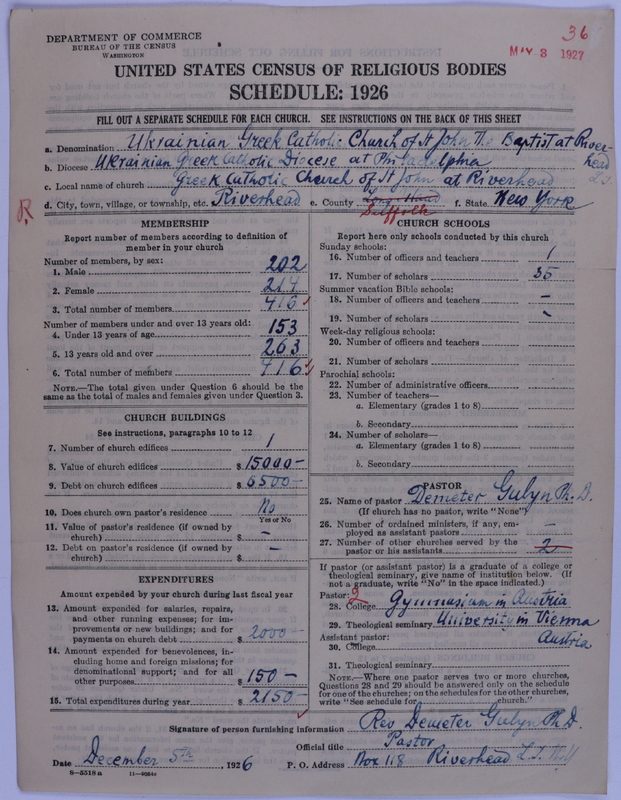 36
DEPARTMENT OF COMMERCE
BUREAU OF THE CENSUS
WASHINGTON
MAY 3 1927
UNITED STATES CENSUS OF RELIGIOUS BODIES
SCHEDULE: 1926
FILL OUT A SEPARATE SCHEDULE FOR EACH CHURCH. SEE INSTRUCTIONS ON THE BACK OF THIS SHEET
a. Denomination Ukrainian Greek Catholic Church of St John The Baptist at River-
head
b. Diocese Ukrainian Greek Catholic Diocese at Philadelphia
L.I.
c. Local name of church Greek Catholic Church of St John at Riverhead
R.
d. City, town, village, or township, etc. Riverhead e. County Long Island Suffolk f. State New York
MEMBERSHIP
Report number of members according to definition of
member in your church
Number of members, by sex:
1. Male 202
2. Female 214
3. Total number of members 416
Number of members under and over 13 years old:
4. Under 13 years of age 153
5. 13 years old and over 263
6. Total number of members 416
NOTE.—The total given under Question 6 should be
same as the total of males and females given under Question 3.
CHURCH BUILDINGS
See instructions, paragraphs 10 to 12
7. Number of church edifices 1
8. Value of church edifices $ 15000-
9. Debt on church edifices $ 6500-
10. Does church own pastor's residence No
Yes or No
11. Value of pastor's residence (if owned by
church) $ -
12. Debt on pastor's residence (if owned by
church) $ -
EXPENDITURES
Amount expended by your church during last fiscal year
13. Amount expended for salaries, repairs,
and other running expenses; for im-
provements or new buildings; and for
payments on church debt $ 2000-
14. Amount expended for benevolences, in-
cluding home and foreign missions; for
denominational support; and for all
other purposes $ 150-
15. Total expenditures during year $ 2150-
CHURCH SCHOOLS
Report here only schools conducted by this church
Sunday schools:
16. Number of officers and teachers 1
17. Number of scholars 35
Summer vacation Bible schools:
18. Number of officers and teachers -
19. Number of scholars -
Week-day religious schools:
20. Number of officers and teachers
21. Number of scholars
Parochial schools:
22. Number of administrative officers
23. Number of teachers—
a. Elementary (grades 1 to 8)
b. Secondary
24. Number of scholars—
a. Elementary (grades 1 to 8)
b. Secondary
PASTOR
25. Name of pastor Demeter Gulyn Ph. D.
(If church has no pastor, write "None")
26. Number of ordained ministers, if any, em-
ployed as assistant pastors -
27. Number of other churches served by the
pastor or his assistants 2
If pastor (or assistant pastor) is a graduate of a college or
theological seminary, give name of institution below. (If
not a graduate, write "No" in the space indicated.)
Pastor: 2
28. College Gymnasium in Austria
29. Theological seminary University in Vienna
Assistant pastor: Austria
30. College
31. Theological seminary
NOTE.—Where one pastor serves two or more churches,
Questions 28 and 29 should be answered only on the schedule
for one of the churches; on the schedules for the other churches,
write "See schedule for church."
Signature of person furnishing information Rev Demeter Gulyn Ph.D.
Official title Pastor
Date December 5th, 1926 P. O. Address Box 118 Riverhead L.I.
8-5518a